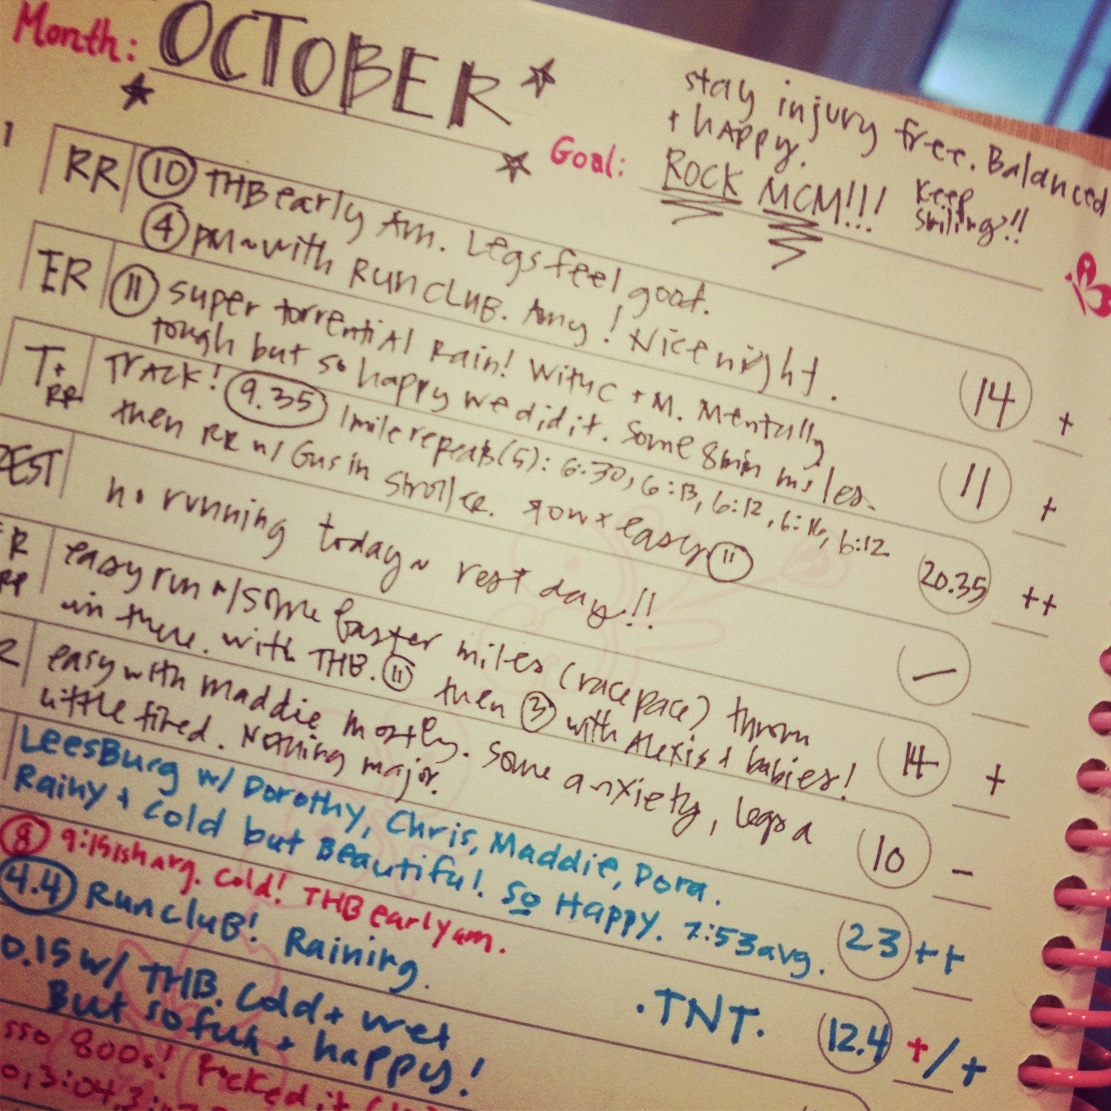 Month: OCTOBER
Goal: stay injury free. Balanced
+ happy.
ROCK MCM!!! Keep
smiling!!
1
RR 10 THB early Am. Legs feel good.
4 pm~with RUN CLUB. Amy! Nice night. 14 +
ER 11 super torrential Rain! With C + M. Mentally
tough but so happy we did it. Some 8min miles. 11 +
T+ RR TRACK! 9.35 1 mile repeats (5): 6:30, 6:13, 6:12, 6:16, 6:12
then RR w/ Gus in stroller. easy 11 20.35 ++
REST no running today~ rest day!! —
easy run w/some faster miles (race pace) thrown
in there. with THB. 11 then 3 with Alexis + babies! 14 +
easy with maddie mostly. Some anxiety, legs a
little tired. Nothing major. 10 -
LeesBurg w/ Dorothy, Chris, Maddie, Dora.
Rainy + Cold but Beautiful. So Happy. 7:53avg. 23 ++
8 9:15ish avg. Cold! THB early am.
4.4 Run cluB! Raining. 12.4 +/+
0.15 w/ THB. Cold + wet .TNT.
But so fun + happy!
800s!
3:04,